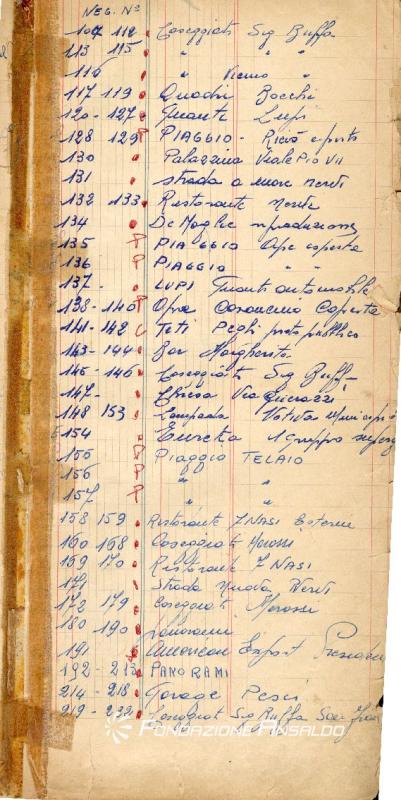 NEG. Nº
107 112 Caseggiati Sig Buffa
113 115 " " "
116 " Vicino "
117 119 Quadri Bocchi
120 - 127 Guanti Lupi
128 129 P PIAGGIO - Ricò aperto
130 Palazzina Viale Pio VII
131 strada a mare Nervi
132 133 Ristorante Nervi
134 De Moglie riproduzione
135 P PIAGGIO Ape coperta
136 P PIAGGIO " "
137 - LUPI automobile
138 - 140 Ape Coperta
141 - 142 Teti Pegli pubblico
143 - 144 Bar Margherita
145 - 146 Caseggiati Sig Buffa
147 - Chiesa Via
148 153 Lampada Votiva Municipio
154 Eureka 1 Gruppo
155 P Piaggio TELAIO
156 P " "
157 P " "
158 159 Ristorante 7 NASI Esterni
160 168 Caseggiati Morossi
169 170 Ristorante 7 NASI
171 strada nuova Nervi
172 179 Caseggiati Morossi
180 190 panorami
191 American Export
192 - 213 PANORAMI
214 - 218 Garage Pesci
219 - 232 Caseggiati Sig Buffa
FONDAZIONE ANSALDO